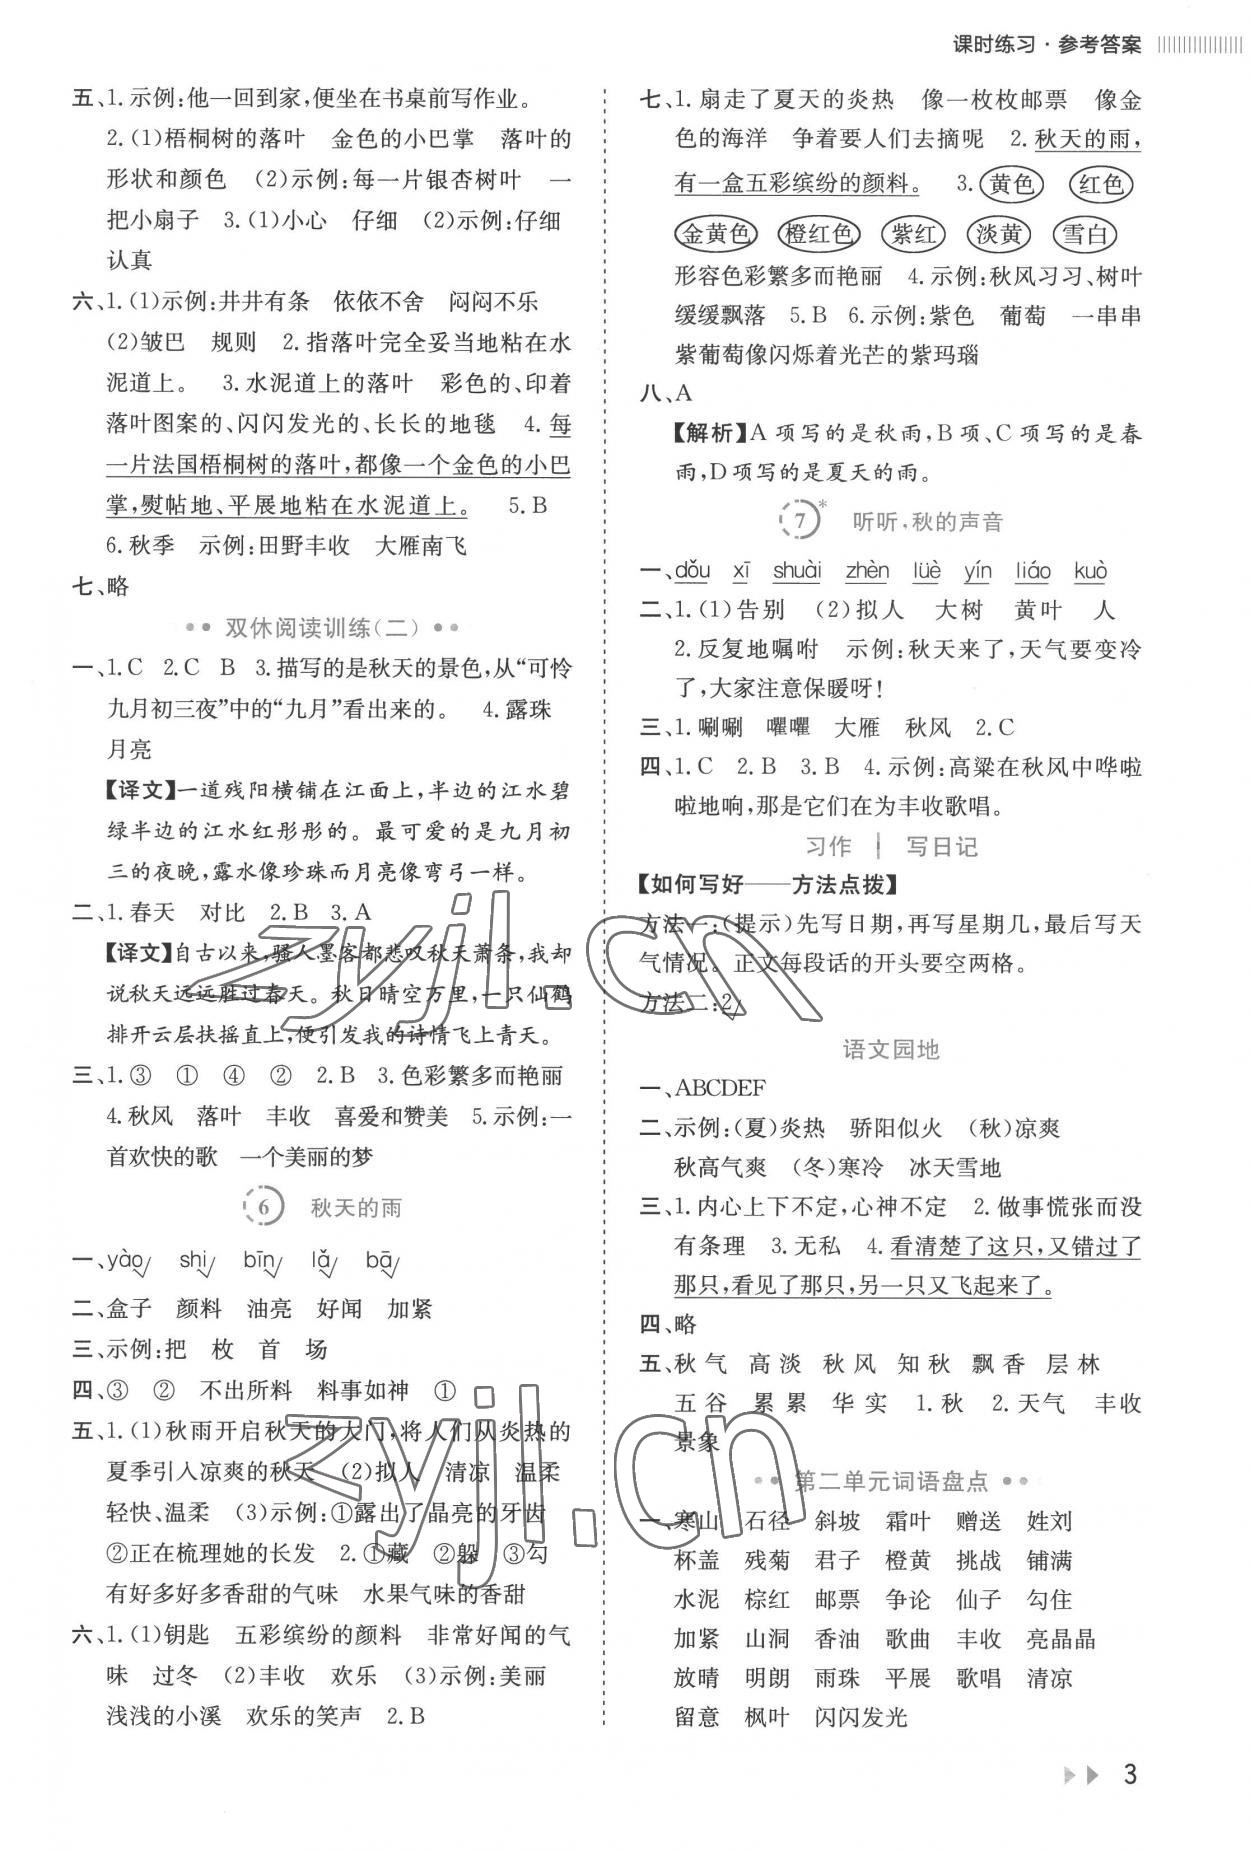 课时练习·参考答案
五、1.示例:他一回到家,便坐在书桌前写作业。
2.(1)梧桐树的落叶 金色的小巴掌 落叶的
形状和颜色 (2)示例:每一片银杏树叶 一
把小扇子 3.(1)小心 仔细 (2)示例:仔细
认真
六、1.(1)示例:井井有条 依依不舍 闷闷不乐
(2)皱巴 规则 2.指落叶完全妥当地粘在水
泥道上。 3.水泥道上的落叶 彩色的、印着
落叶图案的、闪闪发光的、长长的地毯 4.每
一片法国梧桐树的落叶,都像一个金色的小巴
掌,熨帖地、平展地粘在水泥道上。 5.B
6.秋季 示例:田野丰收 大雁南飞
七、略
双休阅读训练(二)
一、1.C 2.C B 3.描写的是秋天的景色,从“可怜
九月初三夜”中的“九月”看出来的。 4.露珠
月亮
【译文】一道残阳横铺在江面上,半边的江水碧
绿半边的江水红彤彤的。最可爱的是九月初
三的夜晚,露水像珍珠而月亮像弯弓一样。
二、1.春天 对比 2.B 3.A
【译文】自古以来,骚人墨客都悲叹秋天萧条,我却
说秋天远远胜过春天。秋日晴空万里,一只仙鹤
排开云层扶摇直上,便引发我的诗情飞上青天。
三、1.③ ① ④ ② 2.B 3.色彩繁多而艳丽
4.秋风 落叶 丰收 喜爱和赞美 5.示例:一
首欢快的歌 一个美丽的梦
6 秋天的雨
一、yào√ shi√ bīn√ lǎ√ bā√
二、盒子 颜料 油亮 好闻 加紧
三、示例:把 枚 首 场
四、③ ② 不出所料 料事如神 ①
五、1.(1)秋雨开启秋天的大门,将人们从炎热的
夏季引入凉爽的秋天 (2)拟人 清凉 温柔
轻快、温柔 (3)示例:①露出了晶亮的牙齿
②正在梳理她的长发 2.①藏 ②躲 ③勾
有好多好多香甜的气味 水果气味的香甜
六、1.(1)钥匙 五彩缤纷的颜料 非常好闻的气
味 过冬 (2)丰收 欢乐 (3)示例:美丽
浅浅的小溪 欢乐的笑声 2.B
七、1.扇走了夏天的炎热 像一枚枚邮票 像金
色的海洋 争着要人们去摘呢 2.秋天的雨,
有一盒五彩缤纷的颜料。 3.黄色 红色
金黄色 橙红色 紫红 淡黄 雪白
形容色彩繁多而艳丽 4.示例:秋风习习、树叶
缓缓飘落 5.B 6.示例:紫色 葡萄 一串串
紫葡萄像闪烁着光芒的紫玛瑙
八、A
【解析】A项写的是秋雨,B项、C项写的是春
雨,D项写的是夏天的雨。
7* 听听,秋的声音
一、dǒu xī shuài zhèn lüè yín liáo kuò
二、1.(1)告别 (2)拟人 大树 黄叶 人
2.反复地嘱咐 示例:秋天来了,天气要变冷
了,大家注意保暖呀!
三、1.唰唰 㘗㘗 大雁 秋风 2.C
四、1.C 2.B 3.B 4.示例:高粱在秋风中哗啦
啦地响,那是它们在为丰收歌唱。
习作 写日记
【如何写好——方法点拨】
方法一:(提示)先写日期,再写星期几,最后写天
气情况。正文每段话的开头要空两格。
方法二:2√
语文园地
一、ABCDEF
二、示例:(夏)炎热 骄阳似火 (秋)凉爽
秋高气爽 (冬)寒冷 冰天雪地
三、1.内心上下不定,心神不定 2.做事慌张而没
有条理 3.无私 4.看清楚了这只,又错过了
那只,看见了那只,另一只又飞起来了。
四、略
五、秋气 高淡 秋风 知秋 飘香 层林
五谷 累累 华实 1.秋 2.天气 丰收
景象
第二单元词语盘点
一、寒山 石径 斜坡 霜叶 赠送 姓刘
杯盖 残菊 君子 橙黄 挑战 铺满
水泥 棕红 邮票 争论 仙子 勾住
加紧 山洞 香油 歌曲 丰收 亮晶晶
放晴 明朗 雨珠 平展 歌唱 清凉
留意 枫叶 闪闪发光
3
zyjl.cn
zyjl.cn